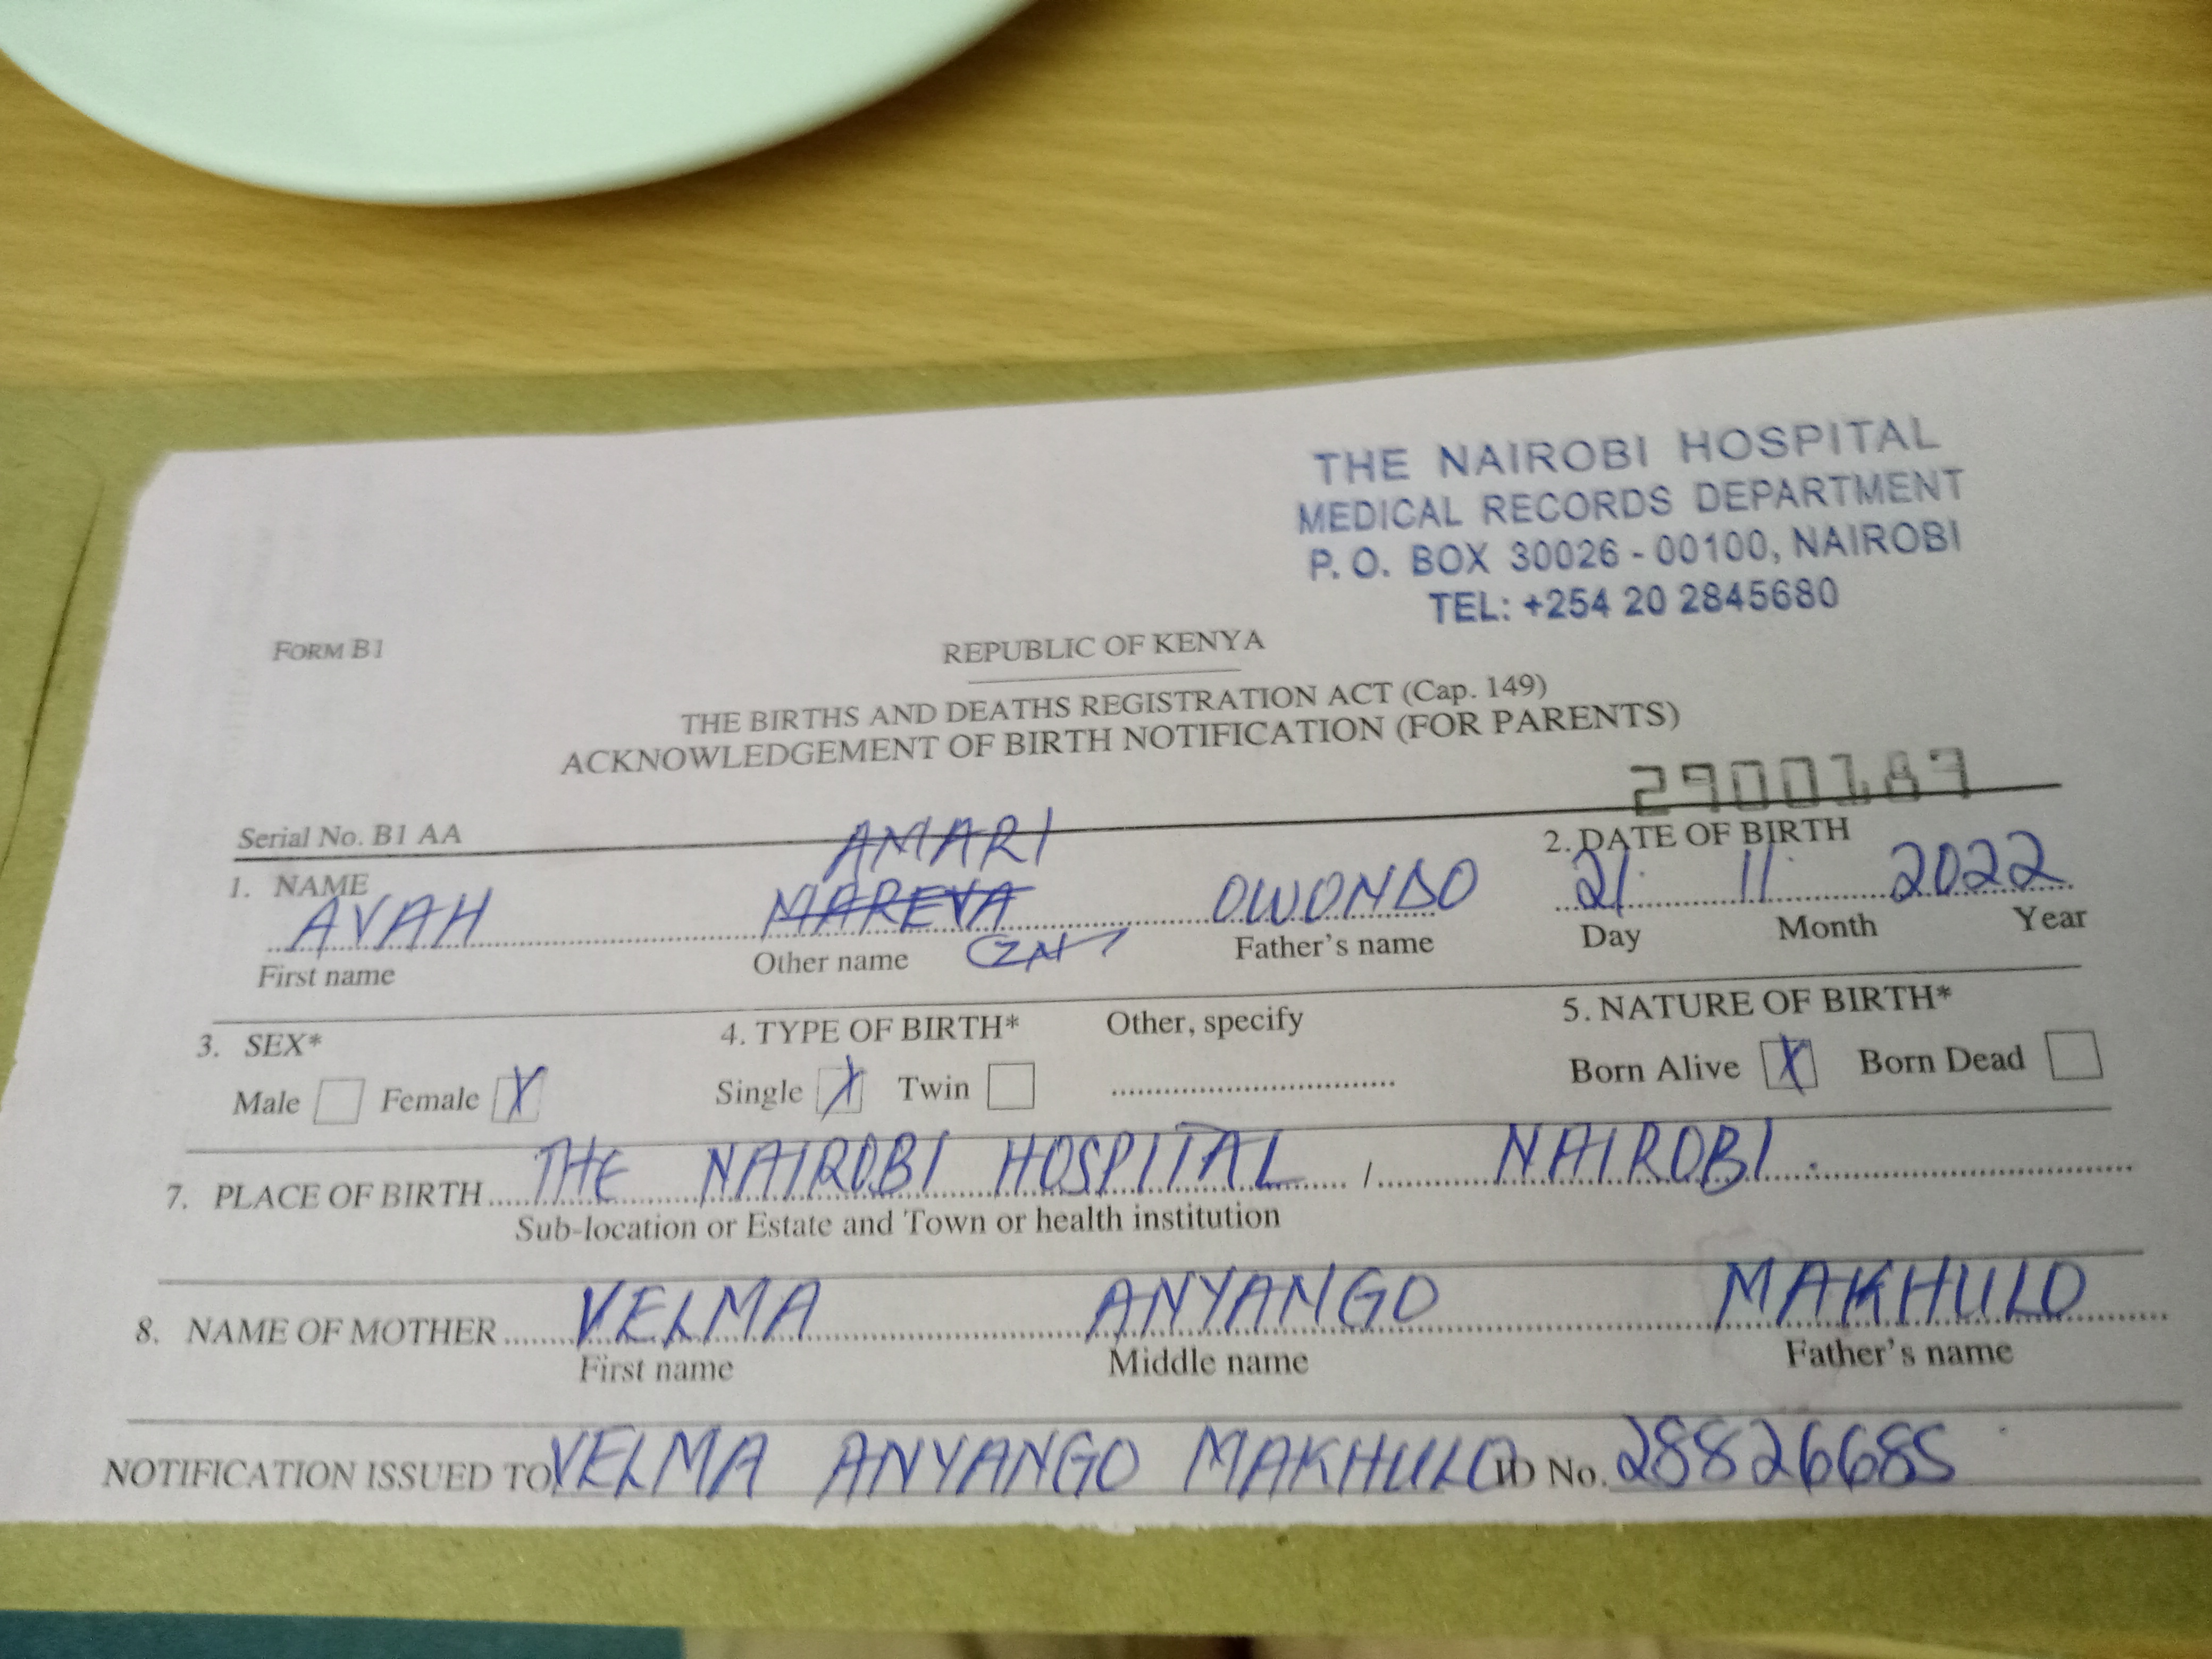 THE NAIROBI HOSPITAL
MEDICAL RECORDS DEPARTMENT
P. O. BOX 30026 - 00100, NAIROBI
TEL: +254 20 2845680
FORM B1
REPUBLIC OF KENYA
THE BIRTHS AND DEATHS REGISTRATION ACT (Cap. 149)
ACKNOWLEDGEMENT OF BIRTH NOTIFICATION (FOR PARENTS)
Serial No. B1 AA 2900187
AMARI
1. NAME 2. DATE OF BIRTH
AVAH MAREVA OWONDO 21 11 2022
First name Other name Father's name Day Month Year
3. SEX* 4. TYPE OF BIRTH* Other, specify 5. NATURE OF BIRTH*
Male Female X Single X Twin Born Alive X Born Dead
7. PLACE OF BIRTH THE NAIROBI HOSPITAL / NAIROBI.
Sub-location or Estate and Town or health institution
8. NAME OF MOTHER VELMA ANYANGO MAKHULO
First name Middle name Father's name
NOTIFICATION ISSUED TO VELMA ANYANGO MAKHULO ID No. 28826685